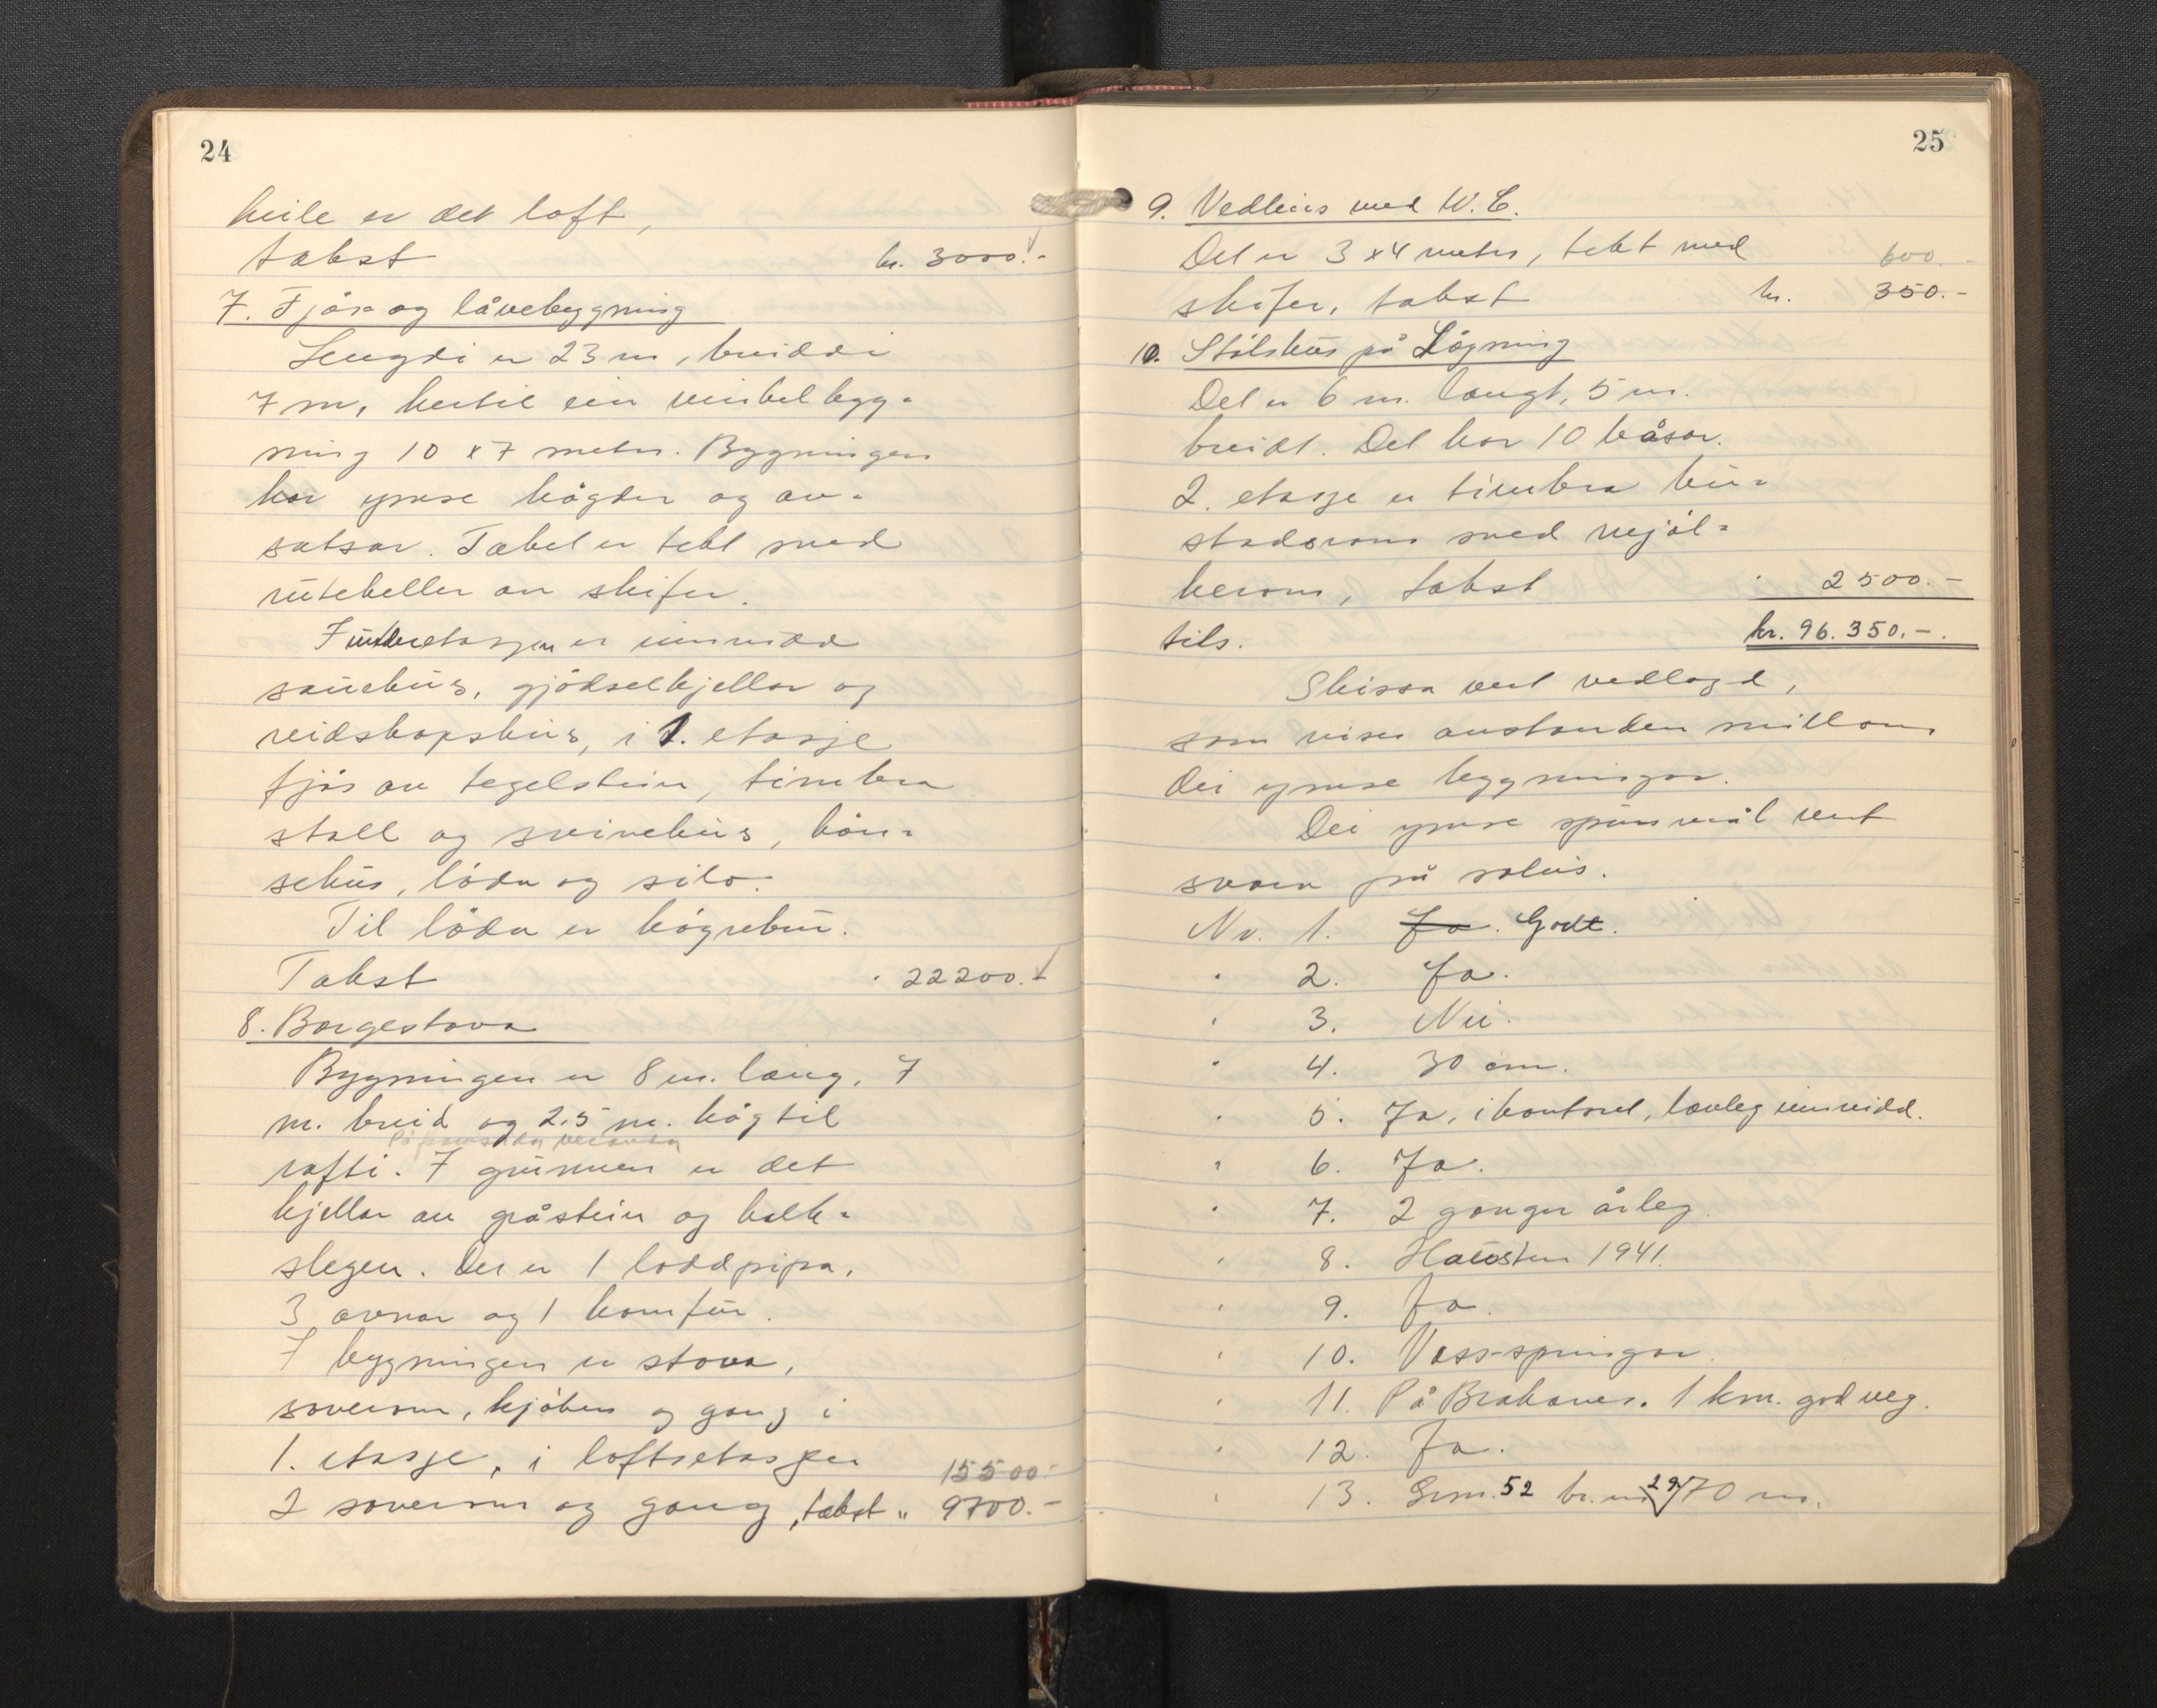 24
heile er det loft,
takst kr. 3000.-
7. Fjös og låvebygning
Lengdi er 23 m, breiddi
7 m, hertil ein vinkelbyg-
ning 10 x 7 meter. Bygningen
har ymse högder og av-
satsar. Taket er tekt med
ruteheller av skifer.
I underetasjen er innreidd
sauehus, gjödselkjellar og
reidskapshus, i 1. etasje
fjös av tegelstein, timbra
stall og svinehus, hön-
sehus, löda og silo.
Til löda er högrebru.
Takst " 22200.-
8. Borgestova
Bygningen er 8 m. lang, 7
m. breid og 2.5 m. hög til
På framsida veranda
rafti. I grunnen er det
kjellar av gråstein og kalk-
slegen. Der er 1 loddpipa,
3 omnar og 1 komfur.
I bygningen er stova,
soverom, kjöken og gang i
1. etasje, i loftsetasjen 15500-
2 soverom og gang, takst " 9700.-
25
9. Vedhus med W.C.
Det er 3 x 4 meter, tekt med 600.-
skifer, takst kr. 350.-
10. Stölshus på Lögning
Det er 6 m. langt, 5 m.
breidt. Det har 10 båsar.
2. etasje er timbra bu-
stadsrom med mjöl-
kerom, takst " 2500.-
tils. kr. 96.350.-.
Skissa vert vedlagd,
som viser avstanden millom
dei ymse bygningar.
Dei ymse spursmål vert
svara på soleis.
Nr. 1. Ja. Godt.
" 2. Ja.
" 3. Nei.
" 4. 30 cm.
" 5. Ja, i kontoret, lovleg innreidd.
" 6. Ja.
" 7. 2 gonger årleg.
" 8. Hausten 1941.
" 9. Ja.
" 10. Vass-springar.
" 11. På Brakanes. 1 km. god veg.
" 12. Ja.
" 13. Grm. 52 br. nr 29 70 m.